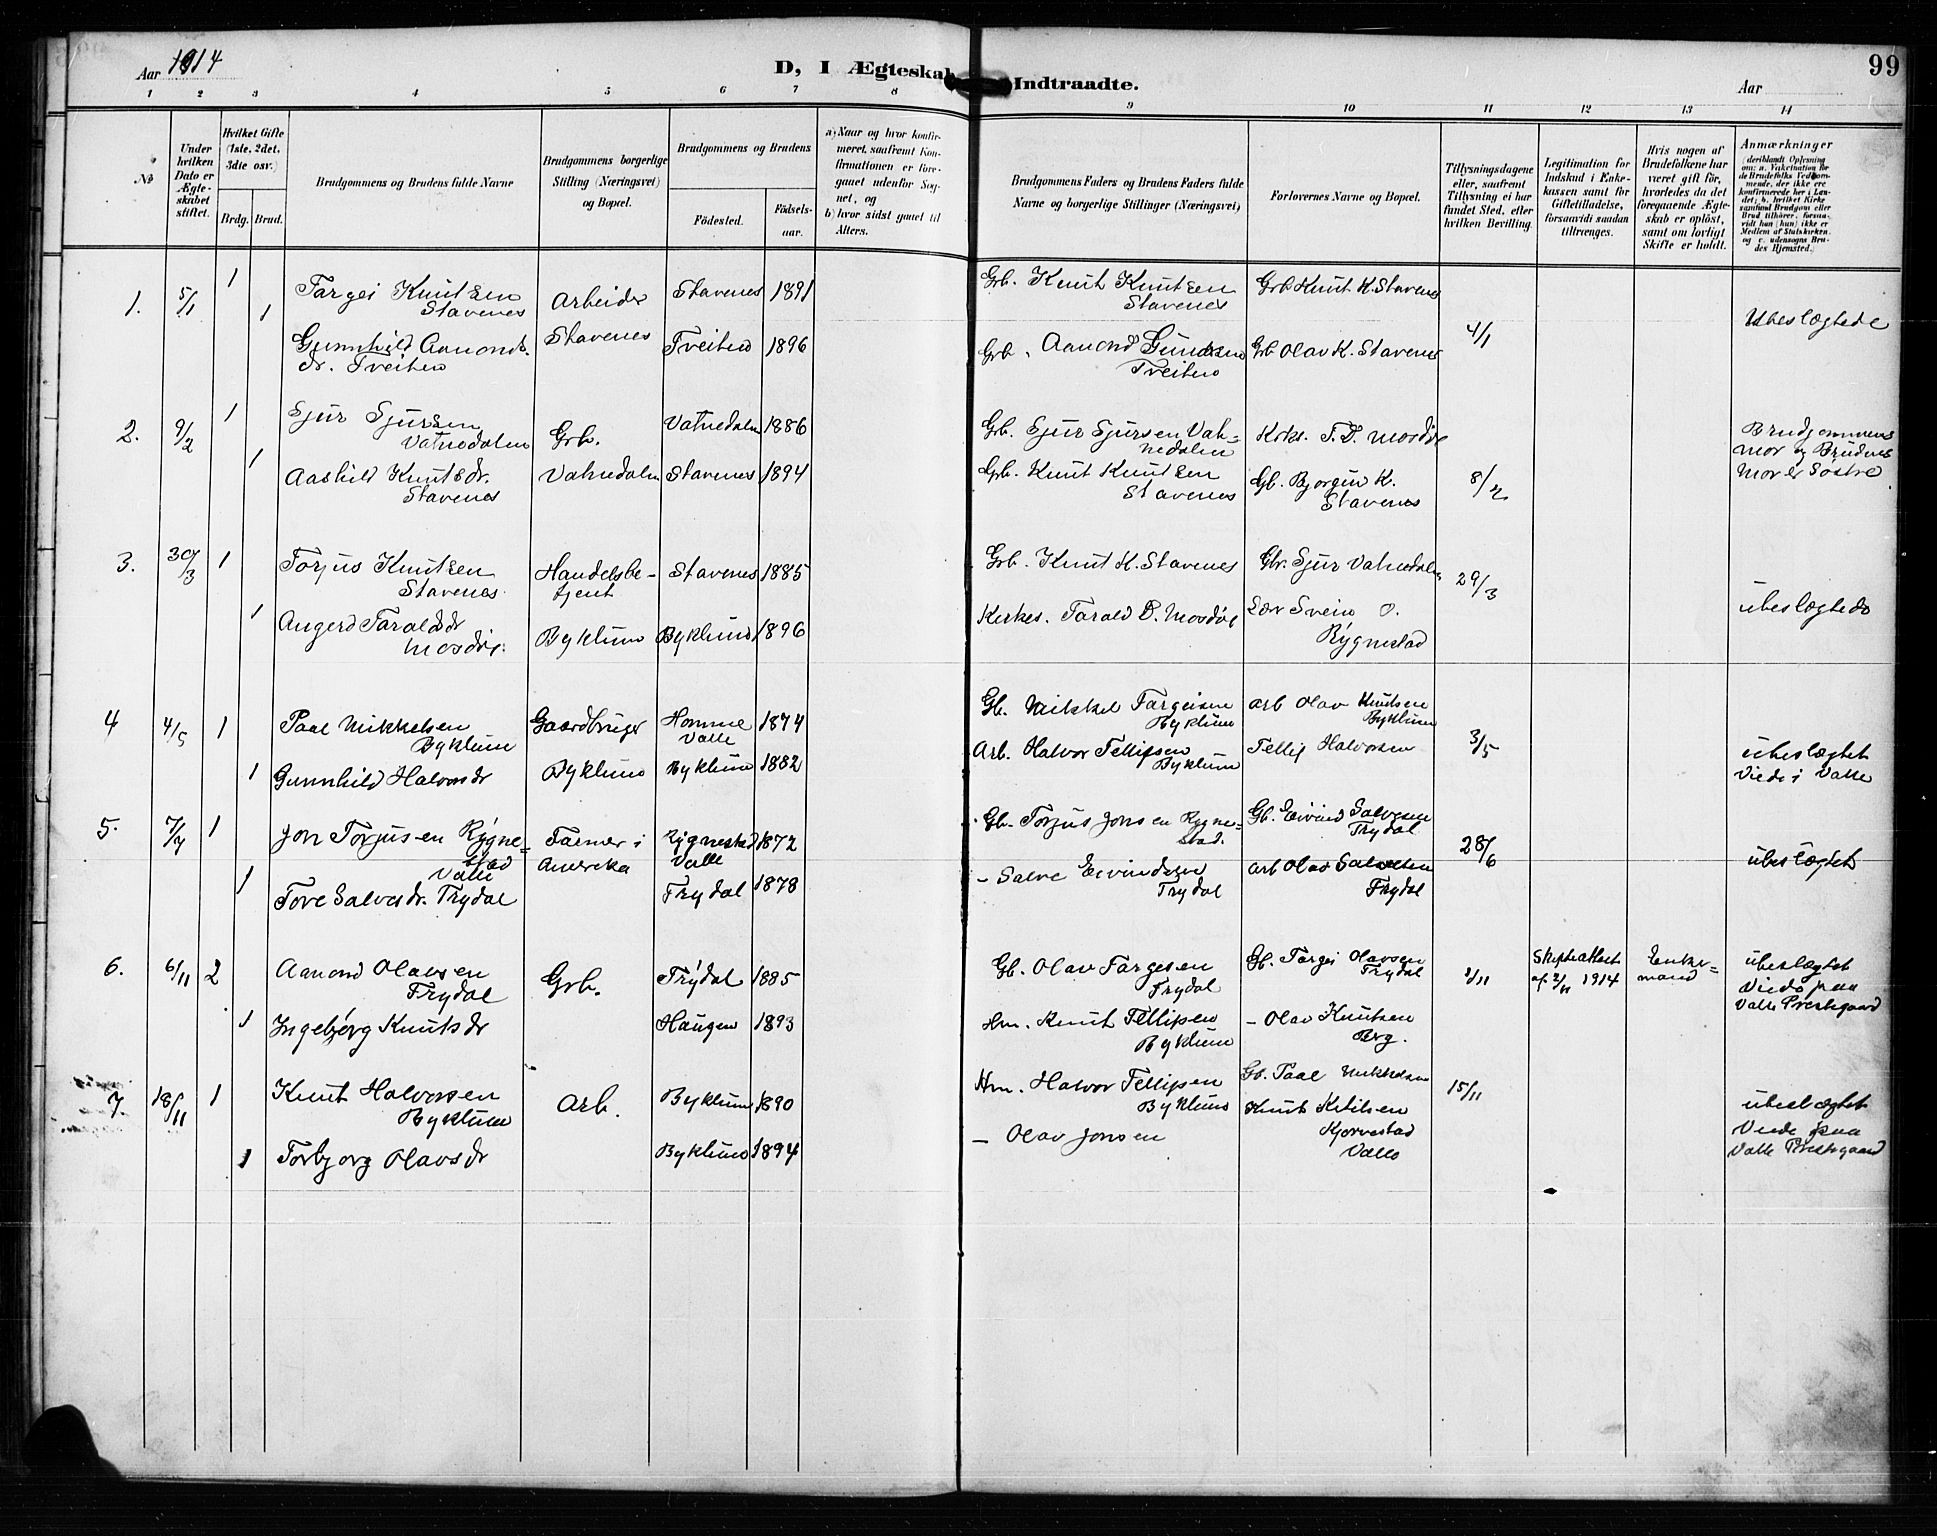 Aar 1914
D, I Ægteskab Indtraadte.
Aar
99
1 2 3 4 5 6 7 8 9 10 11 12 13 14
No
Under hvilken Dato er Ægteskabet stiftet.
Hvilket Gifte (1ste, 2det, 3die osv.)
Brdg. Brud.
Brudgommens og Brudens fulde Navne
Brudgommens borgerlige Stilling (Næringsvei) og Bopæl.
Brudgommens og Brudens
Fødested.
Fødselsaar.
a) Naar og hvor konfirmeret, saafremt Konfirmationen er foregaaet udenfor Sognet, og
b) hvor sidst gaaet til Alters.
Brudgommens Faders og Brudens Faders fulde Navne og borgerlige Stillinger (Næringsvei)
Forlovernes Navne og Bopæl.
Tillysningsdagene eller, saafremt Tillysning ei har fundet Sted, efter hvilken Bevilling.
Legitimation for Indskud i Enkekassen samt for Giftetilladelse, forsaavidt saadan tiltrænges.
Hvis nogen af Brudefolkene har været gift før, hvorledes da det foregaaende Ægteskab er opløst, samt om lovligt Skifte er holdt.
Anmærkninger
1. 5/1 1 Targei Knutsen Stavenes Arbeider Stavenes 1891 Grb. Knut Knutsen Stavenes Grb Knut K. Stavenes 4/1 Ubeslegtede
1 Gunnhild Aamonds dr. Tveiten Stavenes Tveiten 1896 Grb. Aamond Gunnarsen Tveiten Grb Olav K. Stavenes
2. 9/2 1 Sjur Sjursen Vatnedalen Grb. Vatnedalen 1886 Grb. Sjur Sjursen Vatnedalen Kirks. T. D. Mosdøl 8/2 Brudgommens mor og Brudens mor er Søstre
1 Aashild Knutsdr. Stavenes Vatnedalen Stavenes 1894 Grb. Knut Knutsen Stavenes Gb. Bjorgun K. Stavenes
3. 30/3 1 Torjus Knutsen Stavenes Handelsbetjent Stavenes 1885 Grb. Knut K. Stavenes Gbr. Sjur Vatnedalen 29/3 ubeslegtede
1 Angerd Taraldsdr Mosdøl. Byklum Byklum 1896 Kirkes. Tarald D. Mosdøl Lær Svein O. Rygnestad
4 4/5 1 Paal Mikkelsen Byklum Gaardbruger Homme Valle 1874 Gb. Mikkel Targeisen Byklum Arb Olav Knutsen Byklum 3/5 ubeslegtet Viede i Valle
1 Gunnhild Halvorsdr Byklum Byklum 1882 Arb. Halvor Tellefsen Byklum Tellef Halvorsen
5. 7/7 1 Jon Torjusen Rygnestad Valle Farmer i Amerika Rygnestad Valle 1872 Gb. Torjus Jonsen Rygnestad. Gb. Eivind Salvesen Trydal 28/6 ubeslegtet
1 Tore Salvesdr. Trydal Trydal 1878 - Salve Eivindsen Trydal Arb Olav Salvesen Trydal
6. 6/11 2 Aamond Olavsen Trydal Grb. Trydal 1885 Gb. Olav Targesen Trydal Gb. Targei Olavsen Trydal 1/11 Skifteattest af 2/11 1914 Enkemand ubeslegtet Viede paa Valle Prestegaard
1 Ingebjorg Knutsdr Haugen 1893 Hm. Knut Tellefsen Byklum - Olav Knutsen Berg.
7. 18/11 1 Knut Halvorsen Byklum Arb. Byklum 1890 Hm. Halvor Tellefsen Byklum Gb. Paal Mikkelsen 15/11 ubeslegtet Viede paa Valle Prestegaard
1 Torbjorg Olavsdr Byklum 1894 - Olav Jonsen Knut Ketilsen Kjorvestad Valle